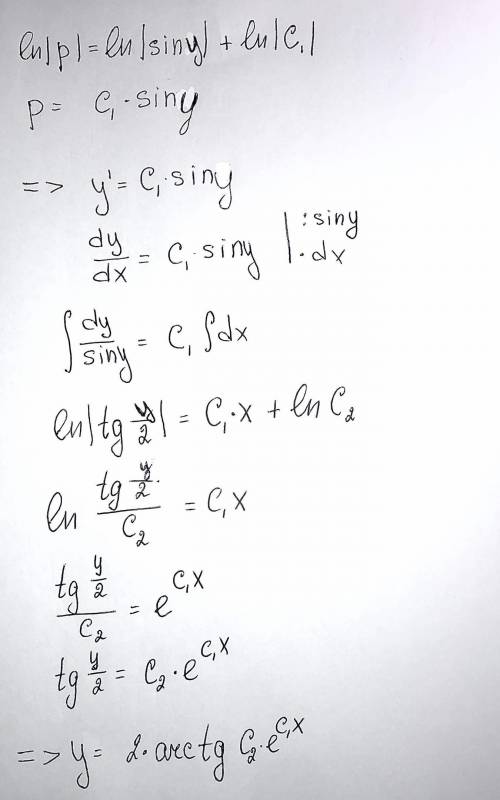 ln|p| = ln|siny| + ln|C₁|
p = C₁·siny
=> y' = C₁·siny
dy/dx = C₁·siny |:siny ·dx
∫ dy/siny = C₁ ∫dx
ln|tg y/2| = C₁·x + ln C₂
ln (tg y/2)/C₂ = C₁x
(tg y/2)/C₂ = e^(C₁x)
tg y/2 = C₂·e^(C₁x)
=> y = 2·arctg C₂·e^(C₁x)